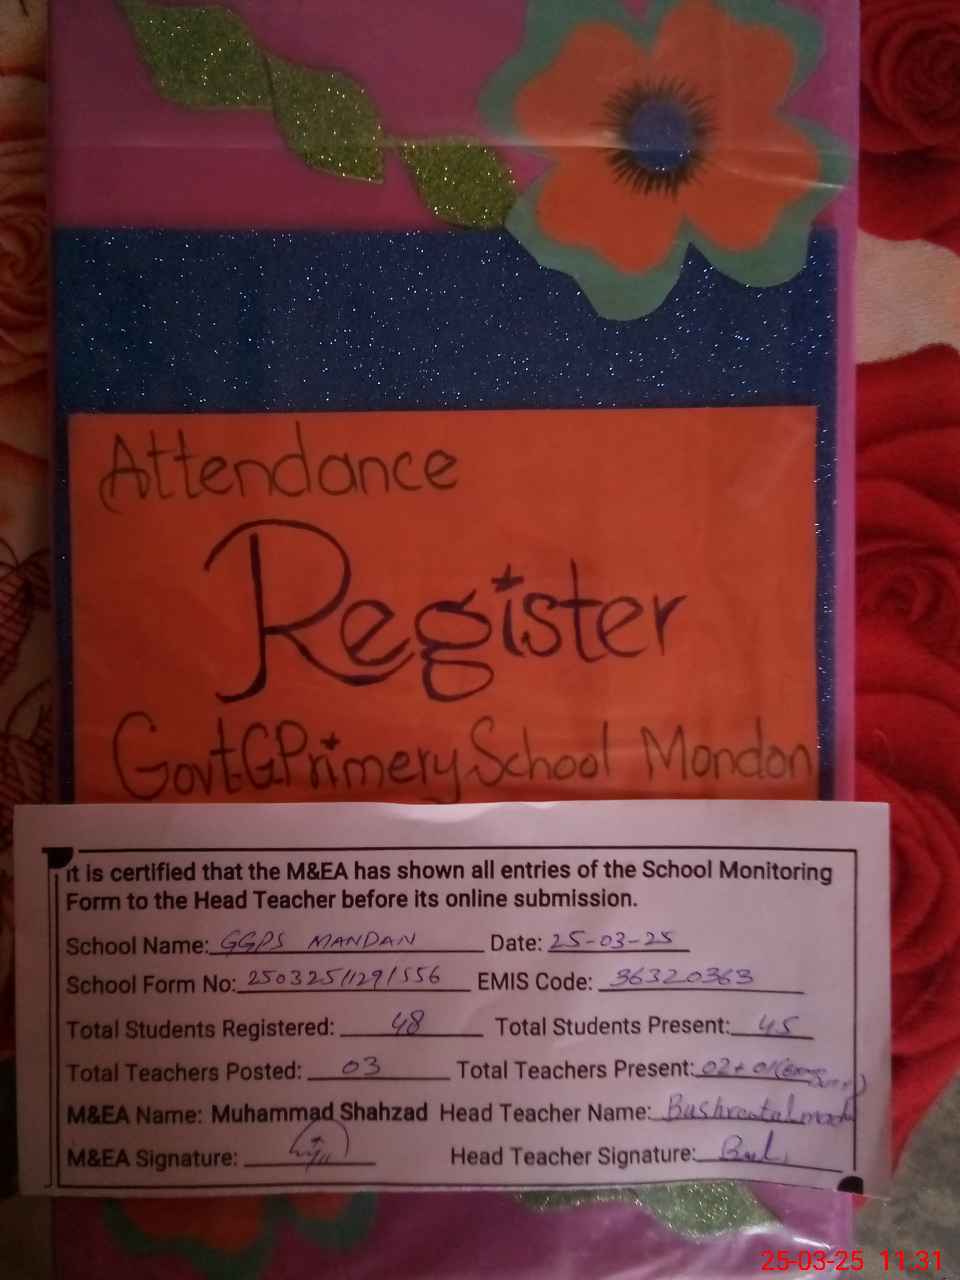 Attendance
Register
Govt.G.Primery School Mondon
It is certified that the M&EA has shown all entries of the School Monitoring
Form to the Head Teacher before its online submission.
School Name: GGPS MANDAN Date: 25-03-25
School Form No: EMIS Code: 36320363
Total Students Registered: 48 Total Students Present: 45
Total Teachers Posted: 03 Total Teachers Present: 02+01
M&EA Name: Muhammad Shahzad Head Teacher Name:
M&EA Signature: Head Teacher Signature:
25-03-25 11:31